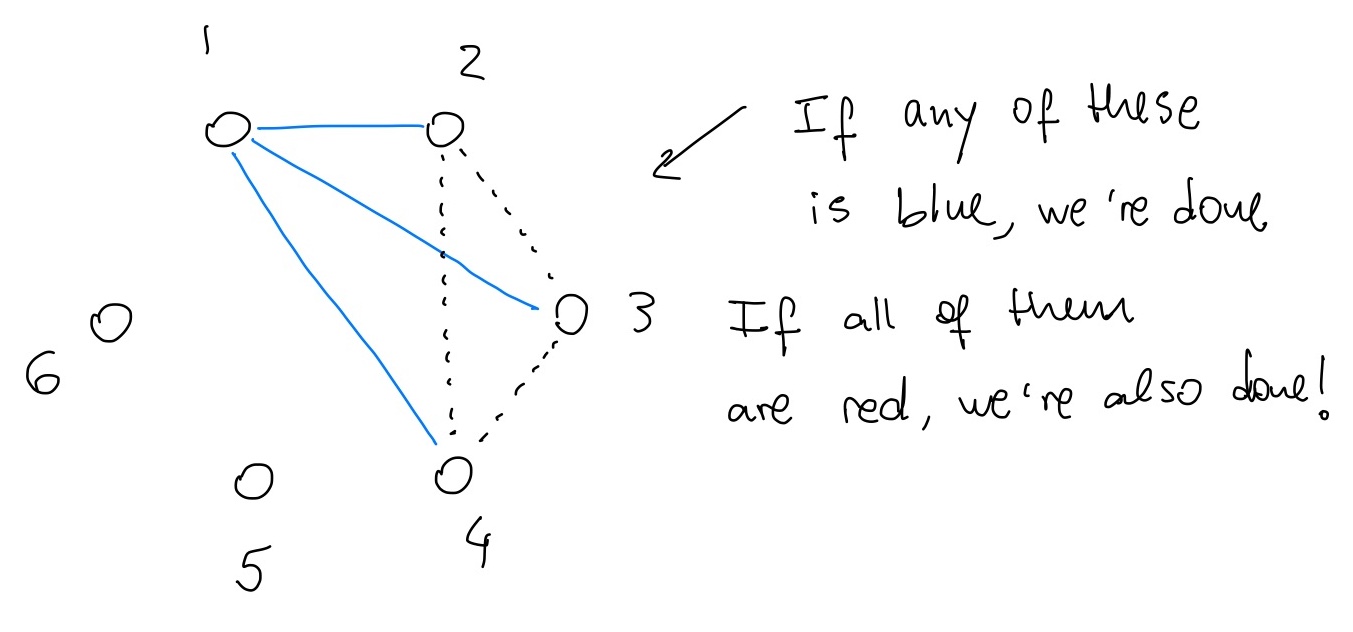 1
2
If any of these
is blue, we're done
3
If all of them
6
are red, we're also done!
4
5